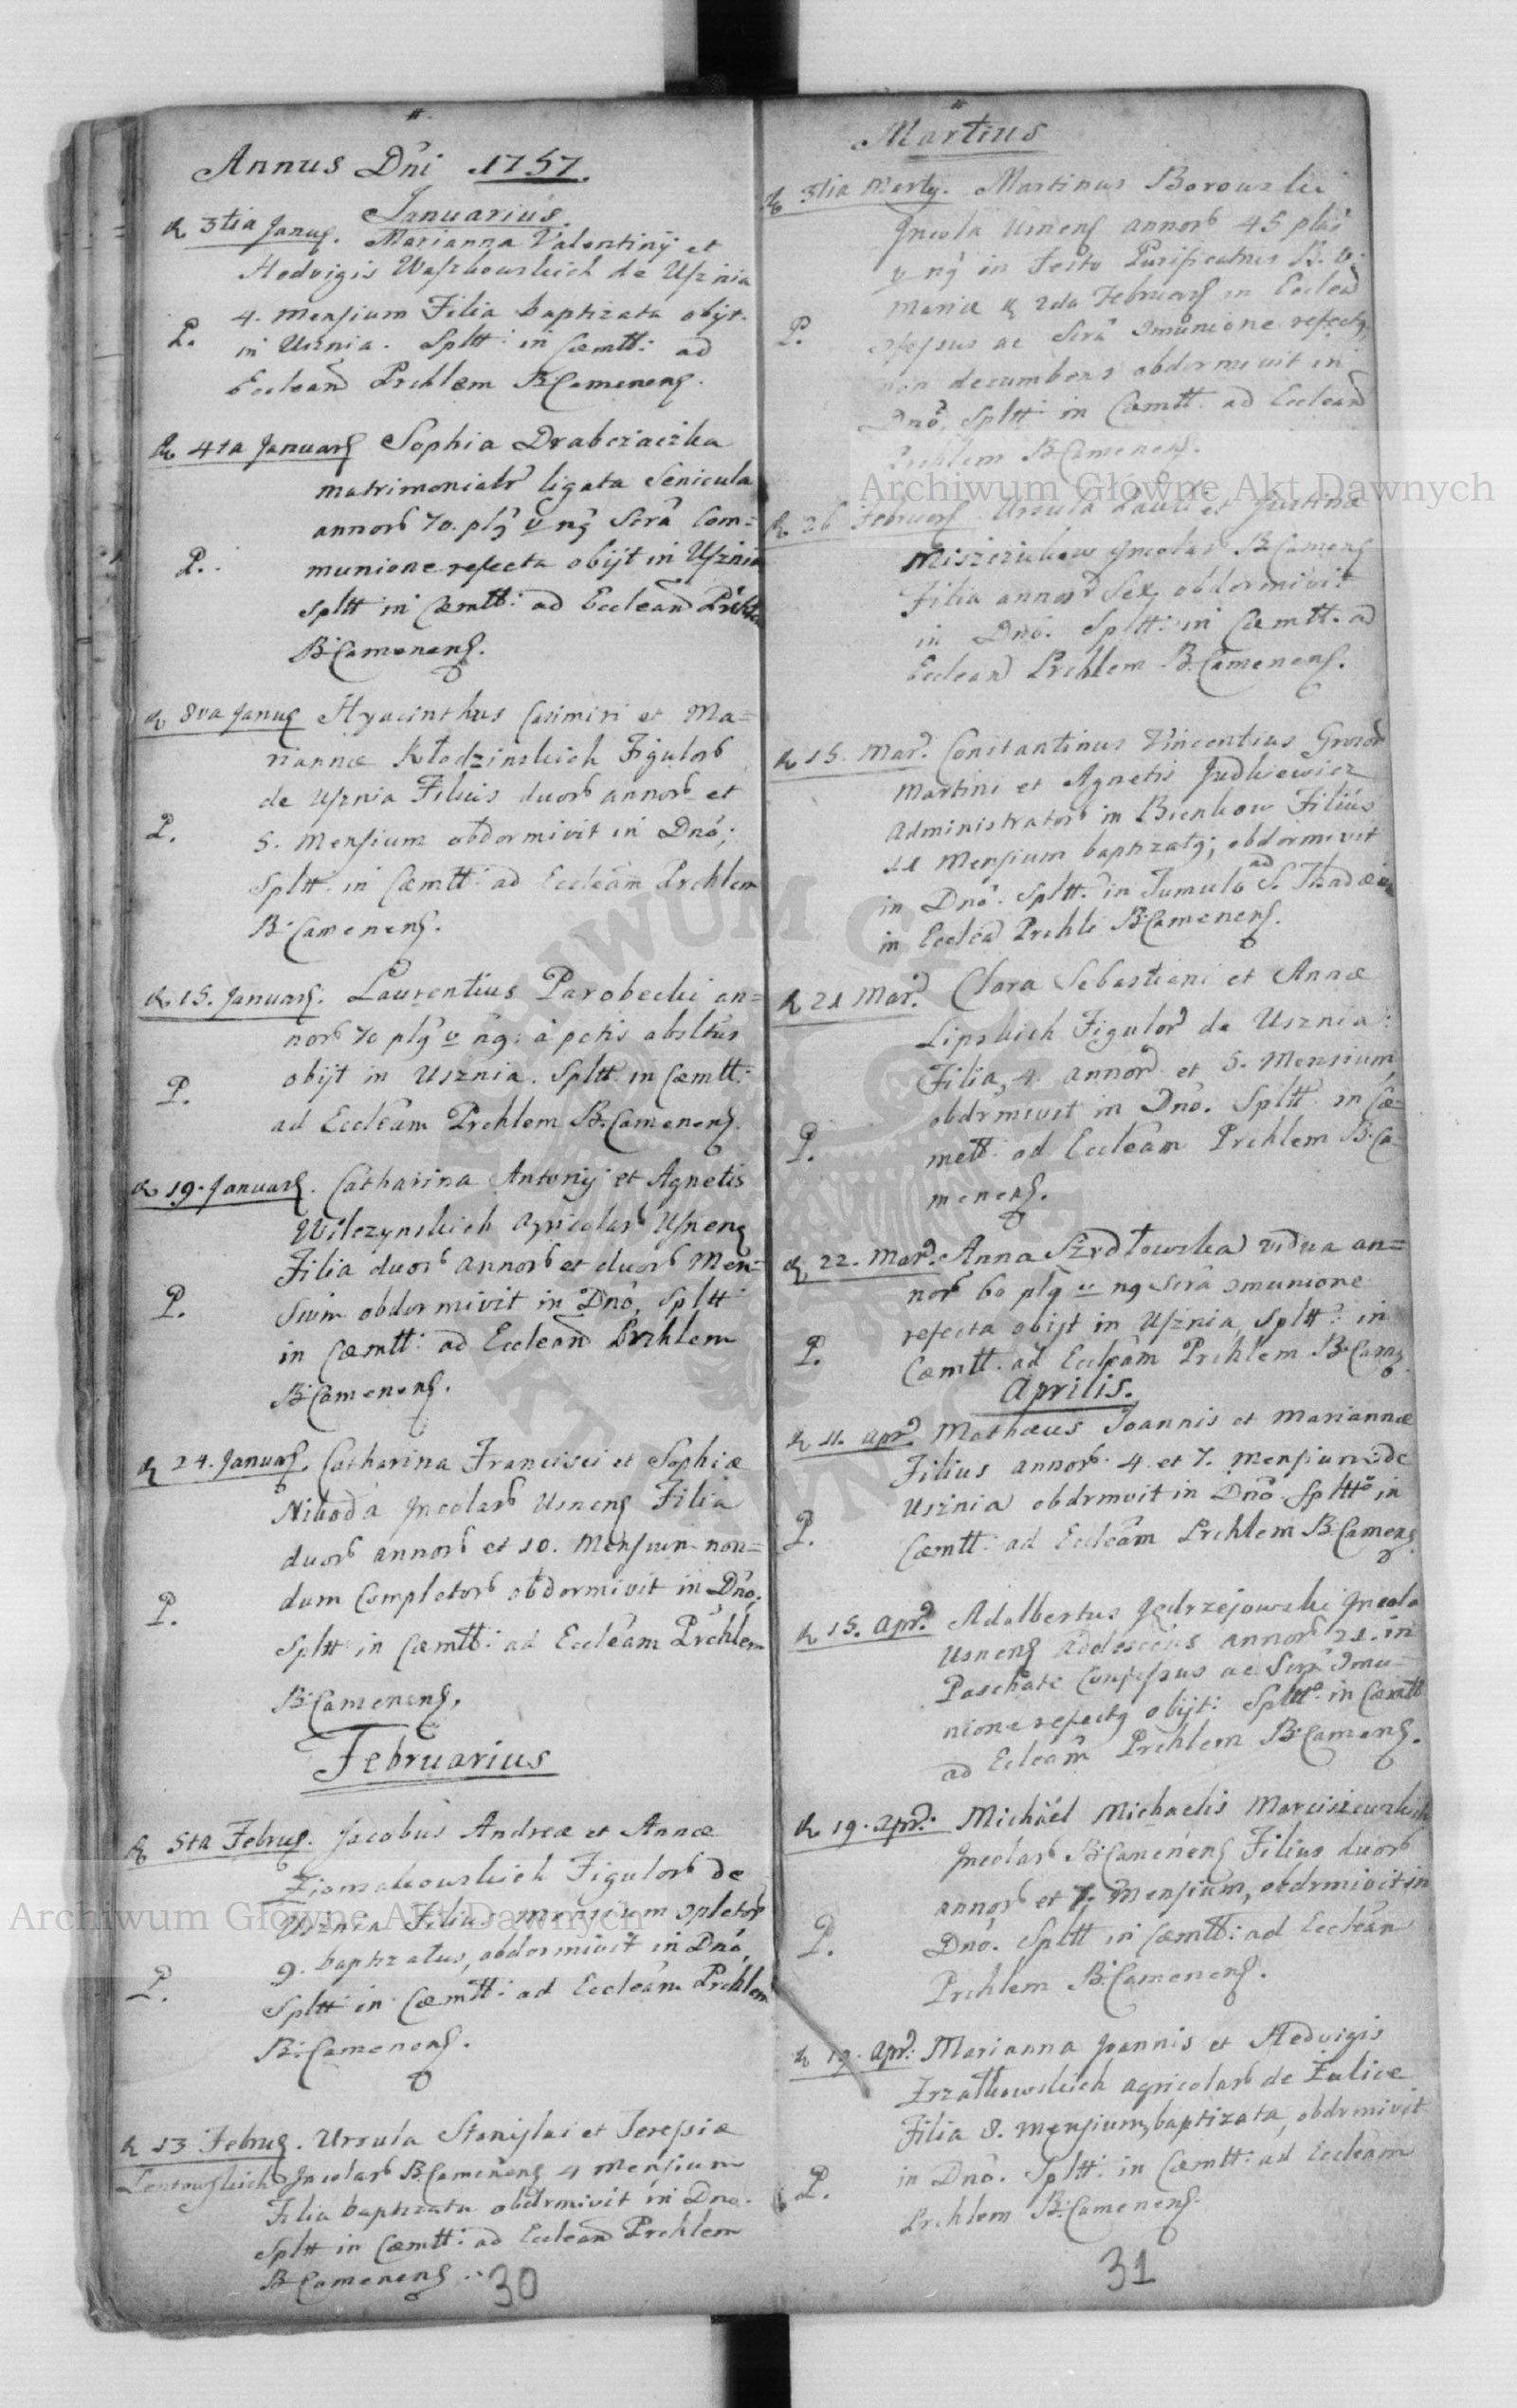 Annus Dni 1757.
Januarius.
3tia Janu. Marianna Valentinÿ et
Hedvigis Waszkowskich de Usznia
4. Mensium Filia baptizata obijt.
P. in Usznia. Spltt: in Cæmtt: ad
Eccleam Prchlem B:Camenens.
4ta Januar Sophia Drabczaczka
matrimonialr ligata Senicula
annorb 70. pls v ns Scrâ Com=
P. munione refecta obijt in Usznia
Spltt in Cæmtt: ad Eccleam Prchl
B:Camenens.
8va Janu Hyacinthus Casimiri et Ma=
riannæ Kłodzinskich Figulorb
de Usznia Filius duorb annorb et
P. 5. Mensium obdormivit in Dnô;
Spltt: in Cæmtt: ad Eccleâm Prchlem
B:Camenens.
15. Januar. Laurentius Parobecki an=
norb 70 pls v ns: à pctis absltus
P. obijt in Usznia. Spltt: in Cæmtt:
ad Eccleâm Prchlem B:Camenens.
19. Januar. Catharina Antonÿ et Agnetis
Wilczynskich Agricolarb Usnens
Filia duorb annorb et duorb Men=
P. sium obdormivit in Dnô, Spltt
in Cæmtt: ad Eccleam Prchlem
B:Camenens.
24. Januar. Catharina Francisci et Sophiæ
Niboda Jncolarb Usnens Filia
duorb annorb et 10. Mensium non=
P. dum Completorb obdormivit in Dnô;
Spltt in Cæmtt: ad Eccleâm Prchlem
B:Camenens.
Februarius
5ta Febru. Jacobus Andreæ et Annæ
Ziomakowskich Figulorb de
Usznia Filius Mensium 9pletorb
9. baptizatus, obdormivit in Dnô,
P. Spltt: in Cæmtt: ad Eccleâm Prchlem
B:Camenens.
13 Febru. Ursula Stanislai et Teresiæ
Jncolarb B:Camenens 4 Mensium
Filia baptizata obdrmivit in Dno.
Spltt in Cæmtt: ad Eccleam Prchlem
B:Camenens
30
Martius
3tia Marty. Martinus Borowski
Jncola Usnens annorb 45 pls
v ns in Festo Purificatnis B. V.
Mariæ 2da Februar in Ecclea
P. 9fessus ac Scrâ 9munione refects,
non decumbens obdormivit in
Dnô, Spltt: in Cæmtt: ad Eccleam
Prchlem B:Camenens.
26 Februar. Ursula Pauli et Justinæ
Jncolarb B:Camens
Filia annor Sex, obdormivit
in Dnô. Spltt: in Cæmtt. ad
Eccleam Prchlem B:Camenens.
15. Mar. Constantinus Vincentius Gnsor
Martini et Agnetis Judkiewicz
Administratorb in Bienkow Filius
11 Mensium baptizats; obdormivit
in Dnô. Spltt: in Tumulo ad S. Thadæu
in Ecclea Prchli B:Camenens.
21 Mar. Clara Sebastiani et Annæ
Lipskich Figulor de Usznia:
Filia, 4. annor. et 5. Mensium
obdrmivit in Dnô. Spltt: in Cæ=
P. mett: ad Eccleâm Prchlem B:Ca=
menens.
22. Mar. Anna Szydłowska vidua an=
nor 60 pls v ns Scrâ 9munione
refecta obijt in Usznia, Spltt: in
P. Cæmtt: ad Eccleâm Prchlem B:Cams
Aprilis.
11. Apr. Mathæus Joannis et Mariannæ
Filius annorb 4 et 7. Mensium de
Usznia obdrmvit in Dnô. Spltt: in
P. Cæmtt: ad Eccleâm Prchlem B:Camens
15. Apr. Adalbertus Jędrzejowski Jncola
Usnens Adolescens annorb 21. in
Paschate Confessus ac Scrâ 9mu=
nione refects obijt: Spltt: in Cæmtt
ad Ecleam Prchlem B:Camens.
19. Apr: Michäel Michaelis Marciszewskich
Jncolarb B:Camenens Filius duorb
annorb et 7. Mensium, obdrmivit in
P. Dnô. Spltt in Cæmtt: ad Eccleâm
Prchlem B:Camenens.
19. Apr: Marianna Joannis et Hedvigis
Zrzałkowskich Agricolarb de Zulice
Filia 8. Mensium, baptizata, obdrmivit
in Dnô. Spltt: in Cæmtt: ad Eccleâm
P. Prchlem B:Camenens.
31
Archiwum Główne Akt Dawnych
Archiwum Główne Akt Dawnych